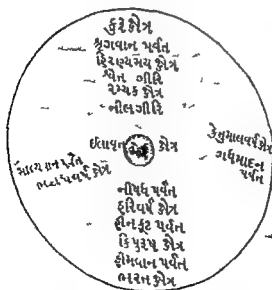 કુરુક્ષેત્ર
શ્રૃગવાન પર્વત
હિરણ્યમય ક્ષેત્ર
શ્વેત ગીરિ
રમ્યક ક્ષેત્ર
નીલગીરિ
ઈલાવૃત ક્ષેત્ર
કેતુમાલવર્ષ ક્ષેત્ર
ગંધમાદન
પર્વત
પર્વત
ક્ષેત્ર
નીષધ પર્વત
હરિવર્ષ ક્ષેત્ર
હીમકુટ પર્વત
કિંપુરુષ ક્ષેત્ર
હીમવાન પર્વત
ભરત ક્ષેત્ર